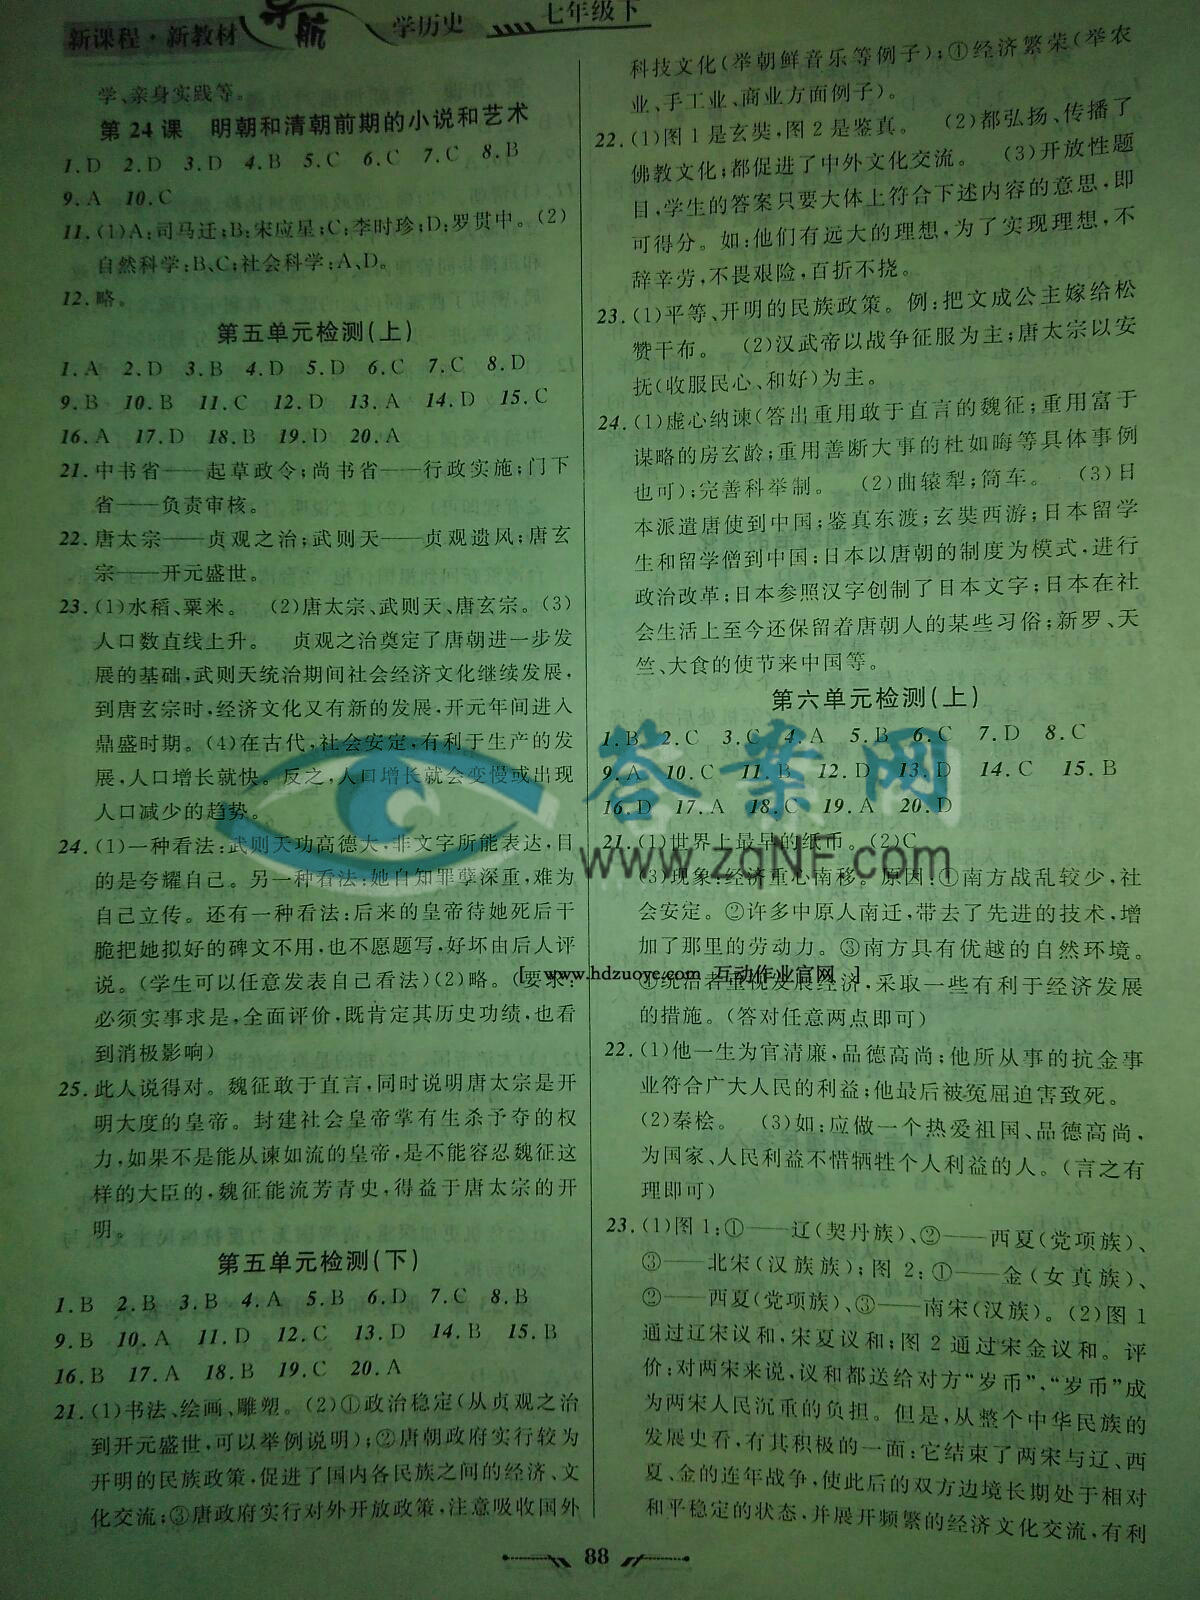 新课程·新教材 导航 学历史 七年级下
学、亲身实践等。
第 24 课 明朝和清朝前期的小说和艺术
1. D 2. D 3. D 4. B 5. C 6. C 7. C 8. B
9. A 10. C
11. (1)A:司马迁;B:宋应星;C:李时珍;D:罗贯中。(2)
自然科学:B、C;社会科学:A、D。
12. 略。
第五单元检测(上)
1. A 2. D 3. B 4. D 5. D 6. C 7. C 8. D
9. B 10. B 11. C 12. D 13. A 14. D 15. C
16. A 17. D 18. B 19. D 20. A
21. 中书省——起草政令;尚书省——行政实施;门下
省——负责审核。
22. 唐太宗——贞观之治;武则天——贞观遗风;唐玄
宗——开元盛世。
23. (1)水稻、粟米。 (2)唐太宗、武则天、唐玄宗。(3)
人口数直线上升。 贞观之治奠定了唐朝进一步发
展的基础,武则天统治期间社会经济文化继续发展,
到唐玄宗时,经济文化又有新的发展,开元年间进入
鼎盛时期。(4)在古代,社会安定,有利于生产的发
展,人口增长就快。反之,人口增长就会变慢或出现
人口减少的趋势。
24. (1)一种看法:武则天功高德大,非文字所能表达,目
的是夸耀自己。另一种看法:她自知罪孽深重,难为
自己立传。还有一种看法:后来的皇帝待她死后干
脆把她拟好的碑文不用,也不愿题写,好坏由后人评
说。(学生可以任意发表自己看法)(2)略。(要求:
必须实事求是,全面评价,既肯定其历史功绩,也看
到消极影响)
25. 此人说得对。魏征敢于直言,同时说明唐太宗是开
明大度的皇帝。封建社会皇帝掌有生杀予夺的权
力,如果不是能从谏如流的皇帝,是不能容忍魏征这
样的大臣的,魏征能流芳青史,得益于唐太宗的开
明。
第五单元检测(下)
1. B 2. B 3. B 4. A 5. B 6. D 7. C 8. B
9. B 10. A 11. D 12. C 13. D 14. B 15. B
16. B 17. A 18. B 19. C 20. A
21. (1)书法、绘画、雕塑。(2)①政治稳定(从贞观之治
到开元盛世,可以举例说明);②唐朝政府实行较为
开明的民族政策,促进了国内各民族之间的经济、文
化交流;③唐政府实行对外开放政策,注意吸收国外
科技文化(举朝鲜音乐等例子);①经济繁荣(举农
业、手工业、商业方面例子)。
22. (1)图 1 是玄奘,图 2 是鉴真。 (2)都弘扬、传播了
佛教文化;都促进了中外文化交流。 (3)开放性题
目,学生的答案只要大体上符合下述内容的意思,即
可得分。如:他们有远大的理想,为了实现理想,不
辞辛劳,不畏艰险,百折不挠。
23. (1)平等、开明的民族政策。例:把文成公主嫁给松
赞干布。 (2)汉武帝以战争征服为主;唐太宗以安
抚(收服民心、和好)为主。
24. (1)虚心纳谏(答出重用敢于直言的魏征;重用富于
谋略的房玄龄;重用善断大事的杜如晦等具体事例
也可);完善科举制。 (2)曲辕犁;筒车。 (3)日
本派遣唐使到中国;鉴真东渡;玄奘西游;日本留学
生和留学僧到中国;日本以唐朝的制度为模式,进行
政治改革;日本参照汉字创制了日本文字;日本在社
会生活上至今还保留着唐朝人的某些习俗;新罗、天
竺、大食的使节来中国等。
第六单元检测(上)
1. B 2. C 3. C 4. A 5. B 6. C 7. D 8. C
9. A 10. C 11. B 12. D 13. D 14. C 15. B
16. D 17. A 18. C 19. A 20. D
21. (1)世界上最早的纸币。(2)C
(3)现象:经济重心南移。原因:①南方战乱较少,社
会安定。②许多中原人南迁,带去了先进的技术,增
加了那里的劳动力。③南方具有优越的自然环境。
④统治者重视发展经济,采取一些有利于经济发展
的措施。(答对任意两点即可)
22. (1)他一生为官清廉,品德高尚;他所从事的抗金事
业符合广大人民的利益;他最后被冤屈迫害致死。
(2)秦桧。 (3)如:应做一个热爱祖国、品德高尚,
为国家、人民利益不惜牺牲个人利益的人。(言之有
理即可)
23. (1)图 1:①——辽(契丹族)、②——西夏(党项族)、
③——北宋(汉族族);图 2:①——金(女真族)、
②——西夏(党项族)、③——南宋(汉族)。(2)图 1
通过辽宋议和,宋夏议和;图 2 通过宋金议和。评
价:对两宋来说,议和都送给对方“岁币”,“岁币”成
为两宋人民沉重的负担。但是,从整个中华民族的
发展史看,有其积极的一面:它结束了两宋与辽、西
夏、金的连年战争,使此后的双方边境长期处于相对
和平稳定的状态,并展开频繁的经济文化交流,有利
88
答案网
www.zqNF.com
[ www.hdzuoye.com 互动作业官网 ]